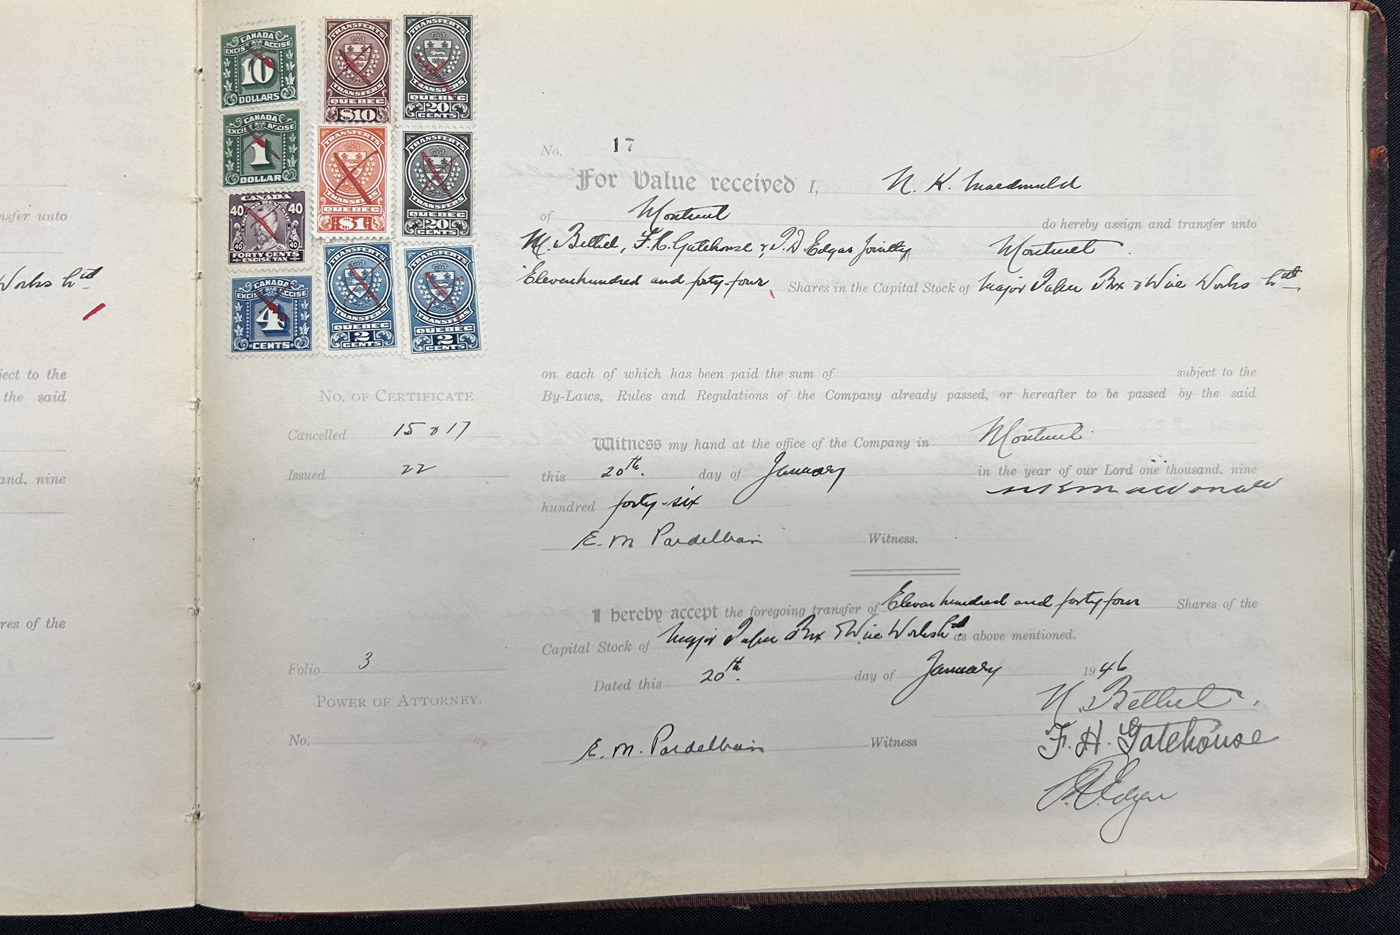 nsfer unto
Works Ltd
ject to the
the said
and, nine
res of the
CANADA
EXCISE ACCISE
10
DOLLARS
TRANSFERTS
TRANSFERS
QUEBEC
$10
TRANSFERTS
TRANSFERS
QUEBEC
20
CENTS
CANADA
EXCISE ACCISE
1
DOLLAR
TRANSFERTS
TRANSFERS
QUEBEC
$1
TRANSFERTS
TRANSFERS
QUEBEC
20
CENTS
CANADA
40 40
40 40
FORTY CENTS
EXCISE TAX
CANADA
EXCISE ACCISE
4
CENTS
TRANSFERTS
TRANSFERS
QUEBEC
2
CENTS
TRANSFERTS
TRANSFERS
QUEBEC
2
CENTS
No. 17
For Value received I, N. K. Macdonald
of Montreal do hereby assign and transfer unto
N. Bethel, F. H. Gatehouse & Edgar Jointly Montreal
Elevenhundred and forty-four Shares in the Capital Stock of Major Paper Box & Wire Works Ltd
on each of which has been paid the sum of subject to the
By-Laws, Rules and Regulations of the Company already passed, or hereafter to be passed by the said
No. of Certificate
Cancelled 15 & 17
Issued 22
Witness my hand at the office of the Company in Montreal
this 20th day of January in the year of our Lord one thousand, nine
hundred forty-six
Macdonald
E. M. Witness.
I hereby accept the foregoing transfer of Elevenhundred and forty four Shares of the
Capital Stock of Major Paper Box & Wire Works Ltd as above mentioned.
Folio 3
Dated this 20th day of January 1946
Power of Attorney.
No.
N. Bethel
F. H. Gatehouse
Edgar
E. M. Witness